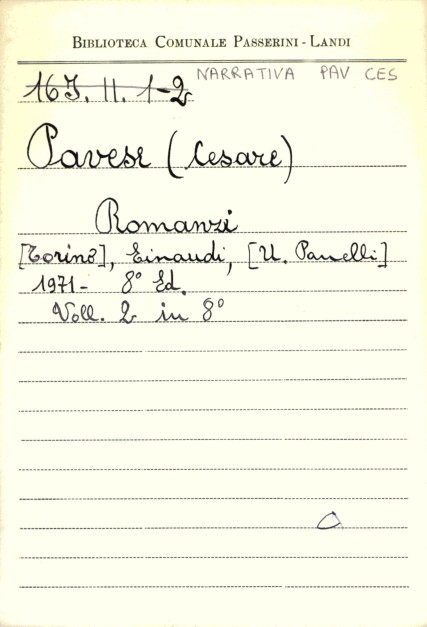 BIBLIOTECA COMUNALE PASSERINI - LANDI
NARRATIVA PAV CES
16J. II. 1-2
Pavese (Cesare)
Romanzi
[Torino], Einaudi, [U. Panelli]
1971- 8° Ed.
Voll. 2 in 8°